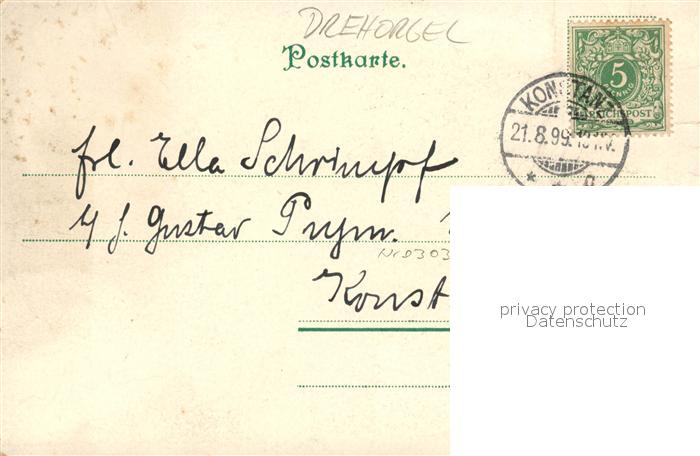 DREHORGEL
Postkarte.
5
REICHSPOST
KONSTANZ
21.8.99.
Frl. Ella Schrimpf
Gustav Prym.
Konst
privacy protection
Datenschutz